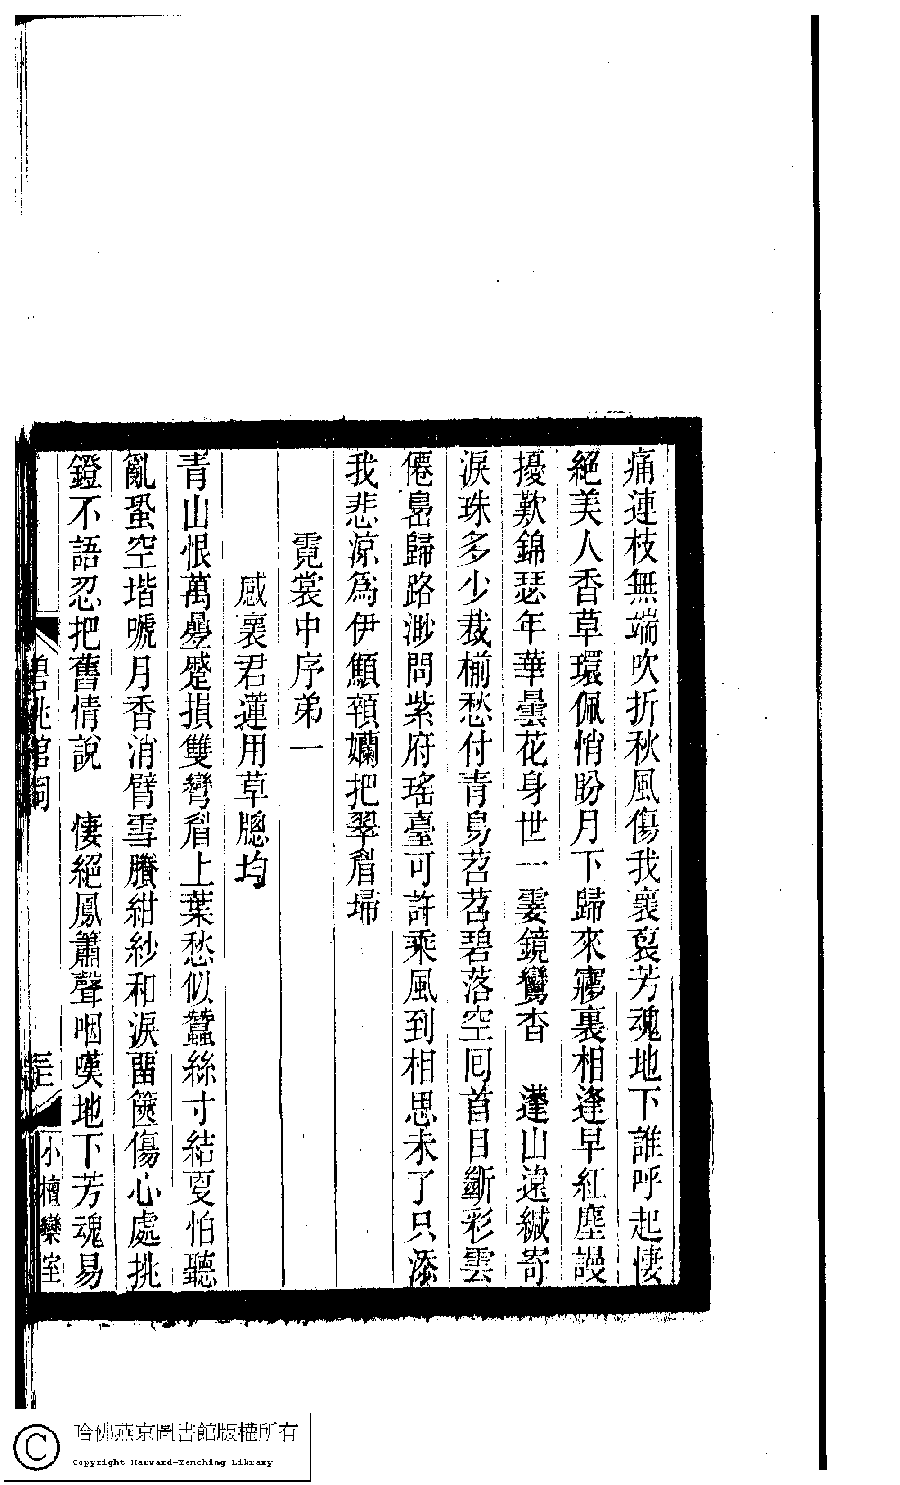 痛連枝無端吹折秋風傷我襄裒芳魂地下誰呼起悽
絕美人香草環佩悄盼月下歸來寤裏相逢早紅塵謾
擾歎錦瑟年華曇花身世一霎鏡鸞杳　蓬山遠緘寄
淚珠多少裁椾愁付青鳥苕苕碧落空囘首日斷彩雲
僊島歸路渺問紫府瑤臺可許乘風到相思未了只添
我悲涼為伊顦頷孏把翠眉埽
霓裳中序弟一
感襄君蓮用草牕均
青山恨萬疊蹙損雙彎眉上葉愁似蠶絲寸結夏怕聽
亂蛩空堦嗁月香消臂雪賸紺紗和淚畱篋傷心處挑
鐙不語忍把舊情說　悽絕鳳簫聲咽嘆地下芳魂易
碧桃館詞
小檀欒室
哈佛燕京圖書館版權所有
Copyright Harvard-Yenching Library